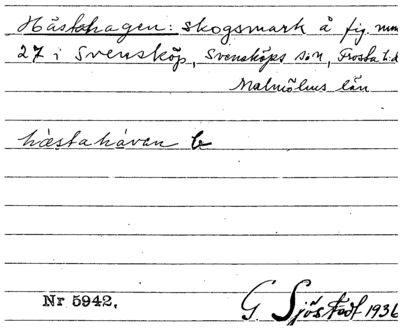 Hästahagen: skogsmark å fig. num
27 i Svensköp, Svensköps s:n, Frosta h.d
Malmöhus län
hästahávan b
Nr 5942.
G Sjöstedt 1936